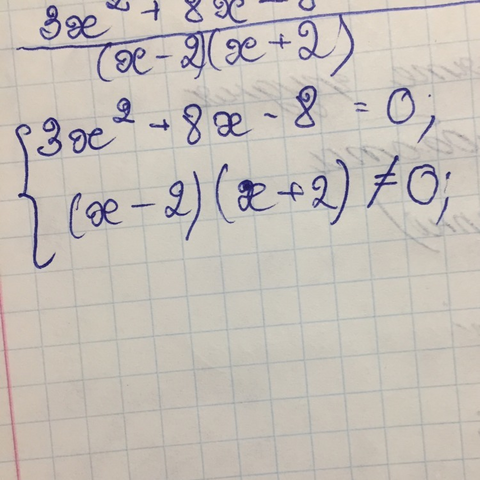 3x² + 8x - 8
(x-2)(x+2)
3x² + 8x - 8 = 0;
(x - 2)(x + 2) ≠ 0;